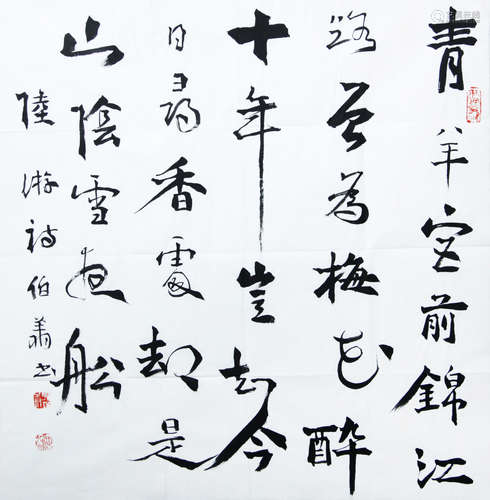 青羊宮前錦江
路曾為梅花醉
十年豈知今
日尋香處却是
山陰雪夜船
陸游詩伯蕭书